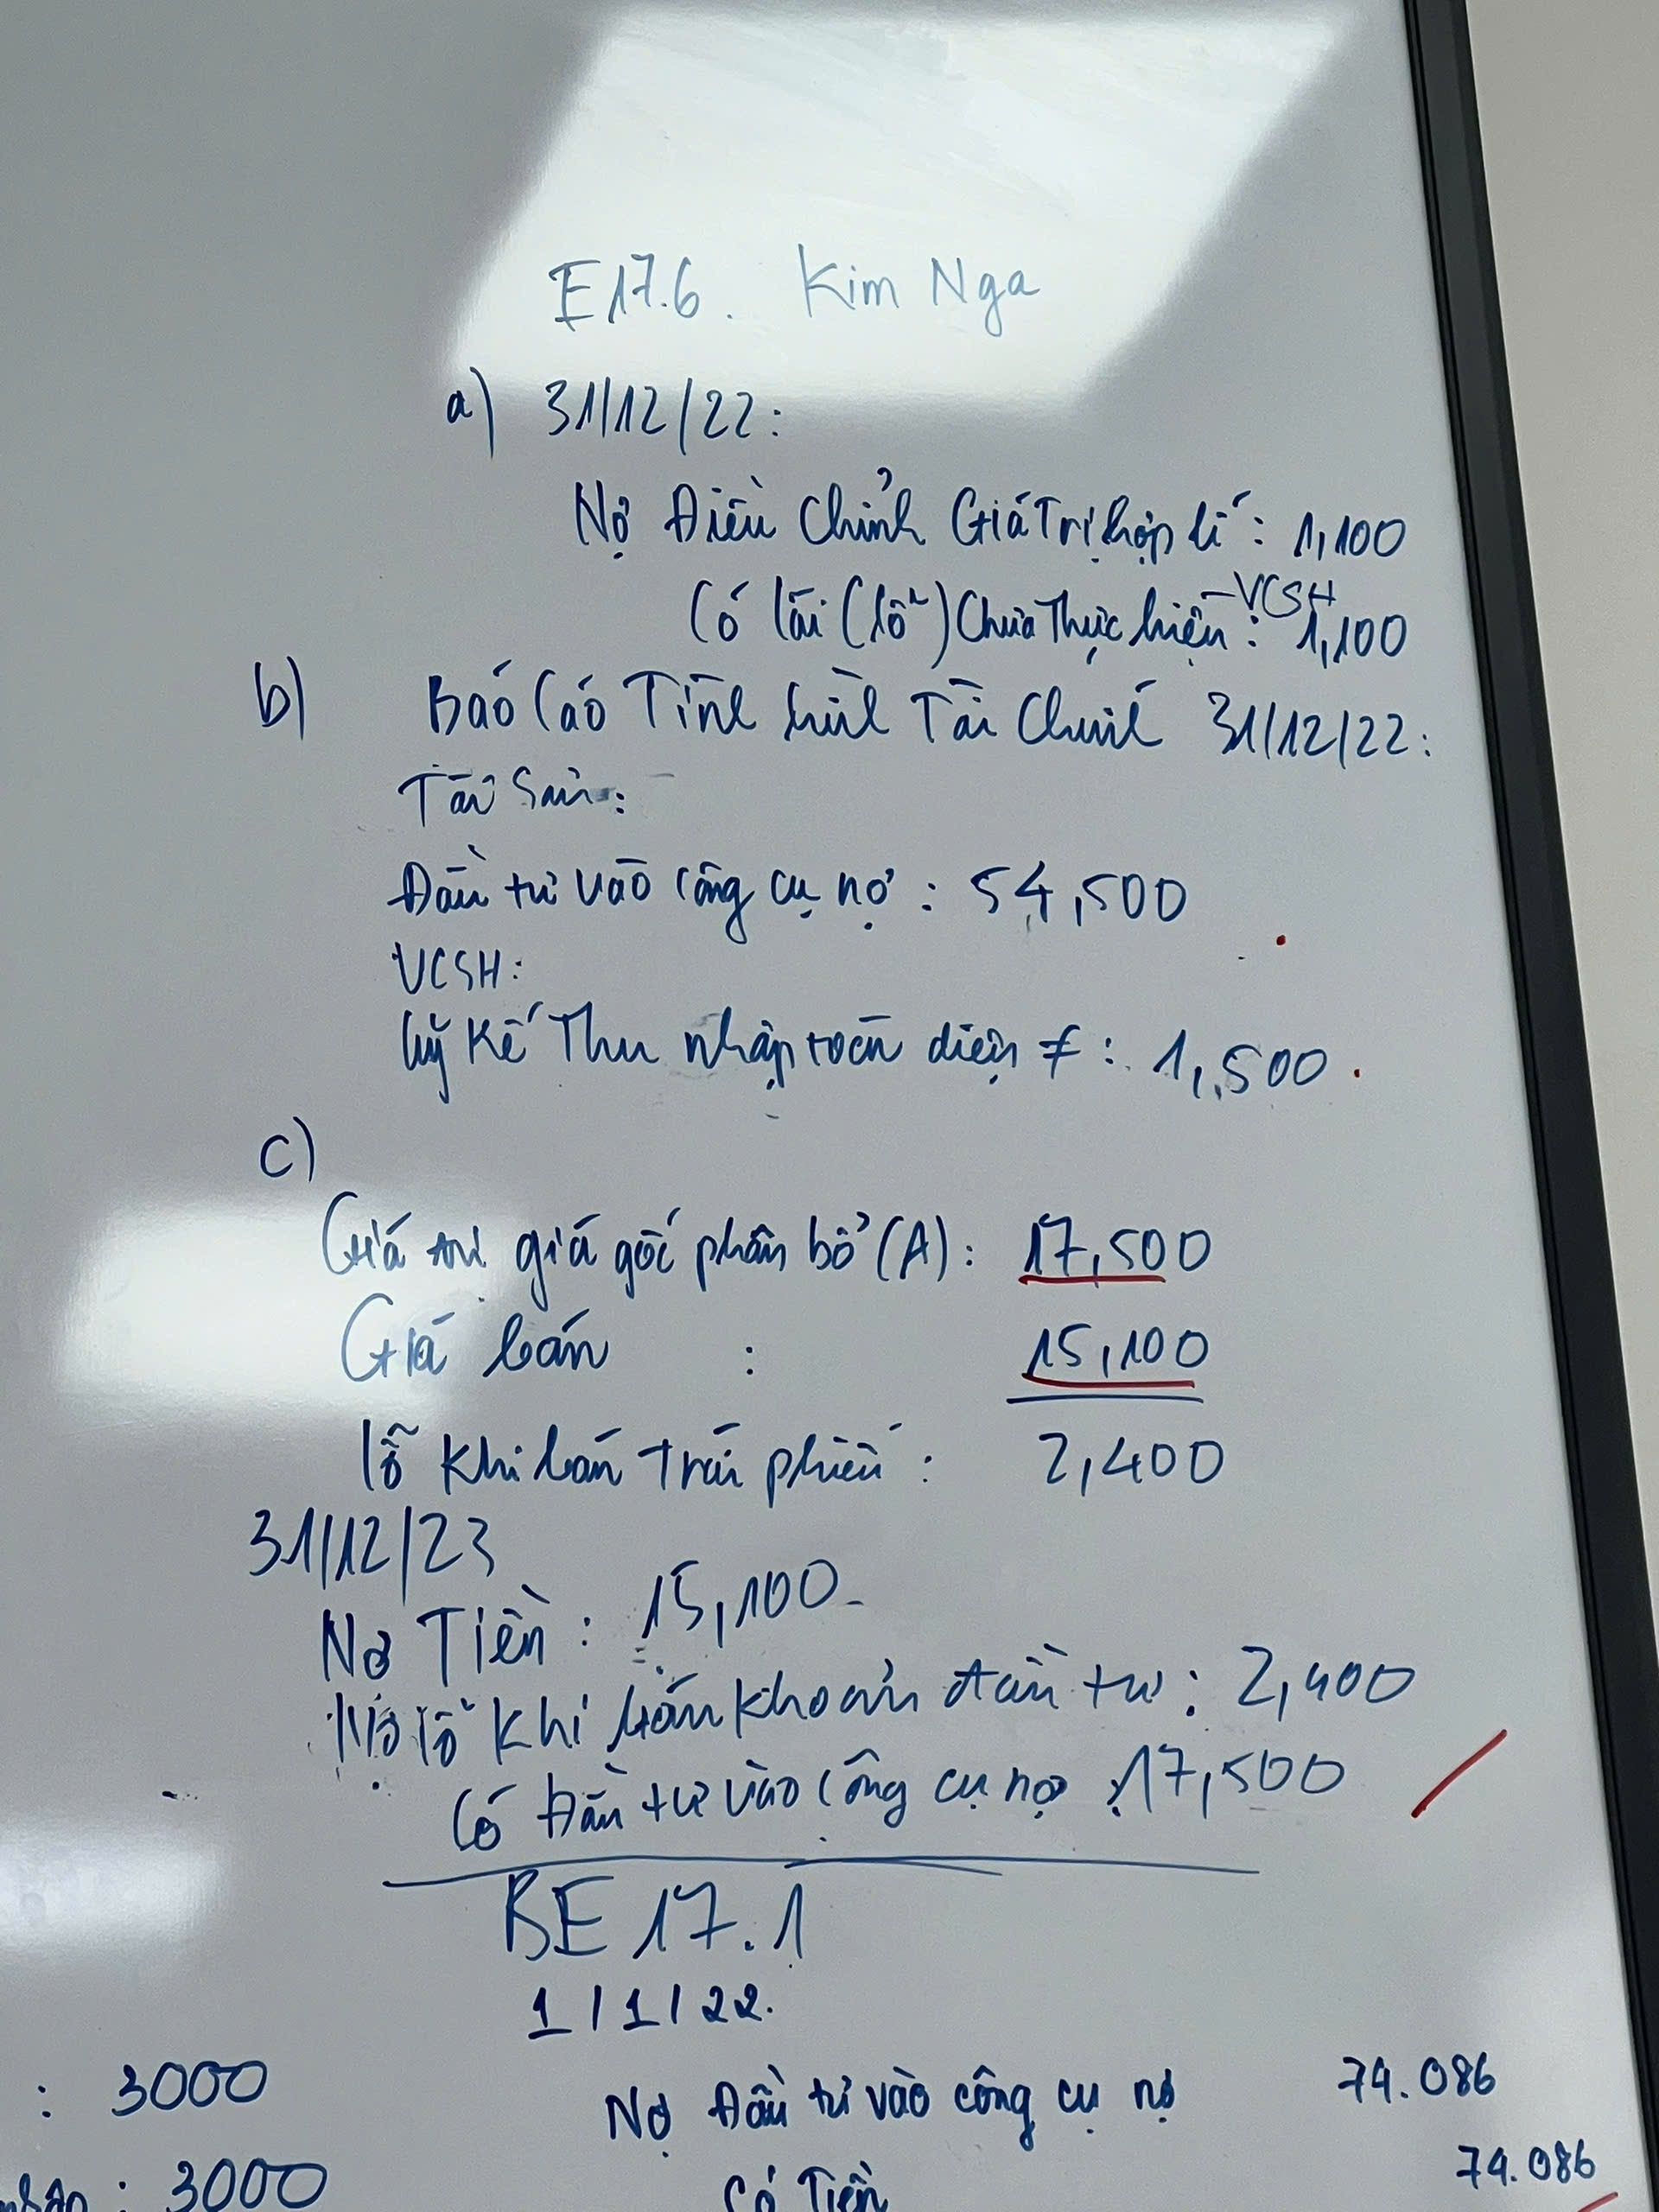 E17.6. Kim Nga
a) 31/12/22:
Nợ Điều Chỉnh Giá Trị hợp lí: 1,100
Có lãi (lỗ) Chưa Thực hiện - VCSH: 1,100
b) Báo Cáo Tình hình Tài Chính 31/12/22:
Tài Sản:
Đầu tư vào công cụ nợ: 54,500
VCSH:
Luỹ Kế Thu nhập toàn diện ≠: 1,500.
c)
Giá trị giá gốc phân bổ (A): 17,500
Giá bán : 15,100
lỗ Khi bán trái phiếu: 2,400
31/12/23
Nợ Tiền: 15,100
Nợ lỗ Khi bán khoản đầu tư: 2,400
Có Đầu tư vào công cụ nợ: 17,500
BE 17.1
1/1/22.
: 3000
Nợ Đầu tư vào công cụ nợ 74.086
: 3000
Có Tiền 74.086